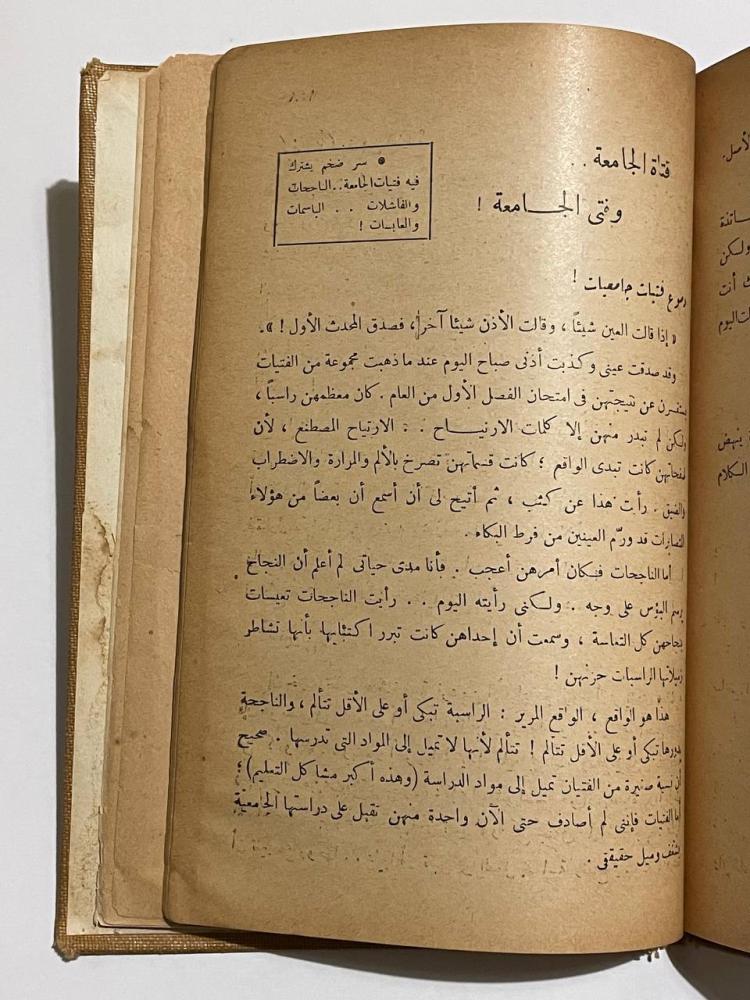 فتاة الجامعة . .
وفتى الجـــامعة !
● سر ضخم يشترك
فيه فتيات الجامعة .. الناجحات
والفاشلات . . الباسمات
والعابسات !
دموع فتيات جامعيات !
« إذا قالت العين شيئاً ، وقالت الأذن شيئا آخر ، فصدق المحدث الأول ! » .
وقد صدقت عينى وكذبت أذنى صباح اليوم عند ما ذهبت مجموعة من الفتيات
يستفسرن عن نتيجتهن فى امتحان الفصل الأول من العام . كان معظمهن راسباً ،
ولكن لم تبدر منهن إلا كلمات الارتيـــاح . . الارتياح المصطنع ، لأن
صفحاتهن كانت تبدى الواقع ؛ كانت قسماتهن تصرخ بالألم والمرارة والاضطراب
والضيق . رأيت هذا عن كثب ، ثم أتيح لى أن أسمع أن بعضاً من هؤلاء
قد ورّم العينين من فرط البكاء .
أما الناجحات فكان أمرهن أعجب . فأنا مدى حياتى لم أعلم أن النجاح
يرسم البؤس على وجه . ولكنى رأيته اليوم . . رأيت الناجحات تعيسات
بنجاحهن كل التعاسة ، وسمعت أن إحداهن كانت تبرر اكتئابها بأنها تشاطر
زميلاتها الراسبات حزنهن !
هذا هو الواقع ، الواقع المرير : الراسبة تبكى أو على الأقل تتألم ، والناجحة
بدورها تبكى أو على الأقل تتألم ! تتألم لأنها لا تميل إلى المواد التى تدرسها . صحيح
أن نسبة صغيرة من الفتيان تميل إلى مواد الدراسة (وهذه أكبر مشاكل التعليم) ؛
أما الفتيات فإننى لم أصادف حتى الآن واحدة منهن تقبل على دراستها الجامعية
بشغف وميل حقيقى .
الأصل .
ولكن
أنت
اليوم
ينهض
الكلام